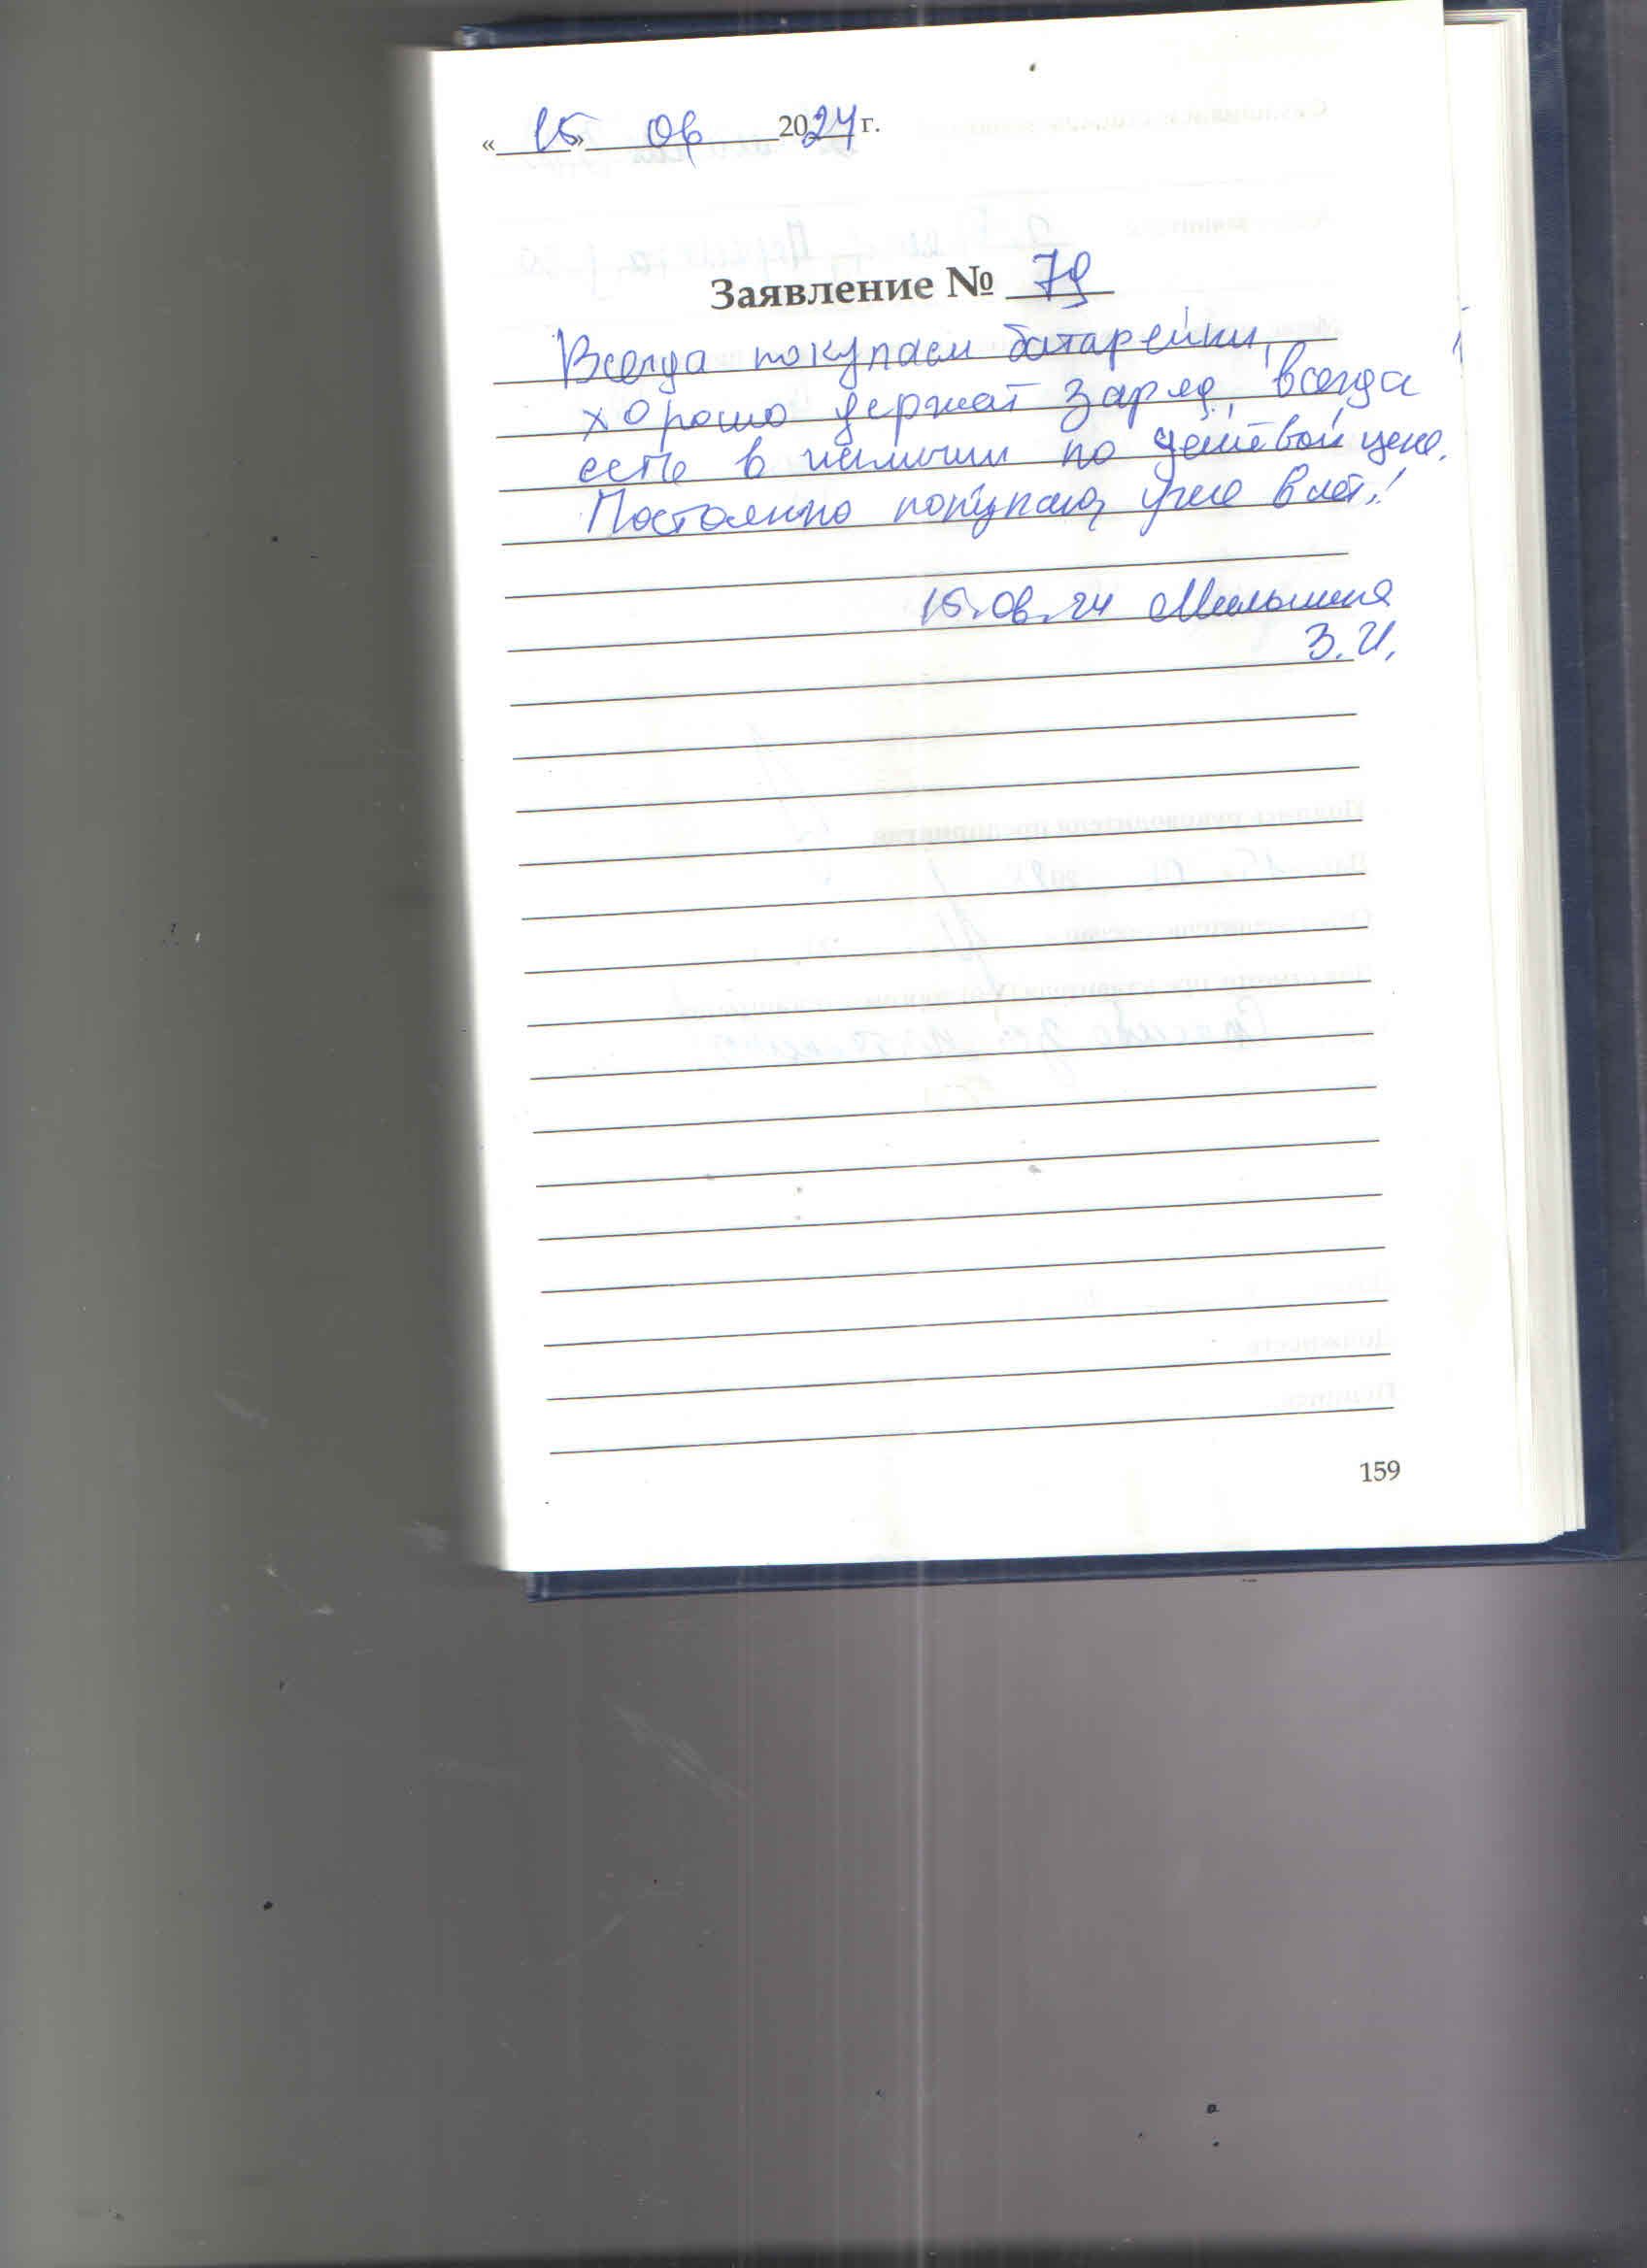 «15» 08 2024 г.
Заявление № 79
Всегда покупаем батарейки,
хорошо держат заряд, всегда
есть в наличии по дешёвой цене.
Постоянно покупаю, уже лет!
15.08.24
З.И.
159